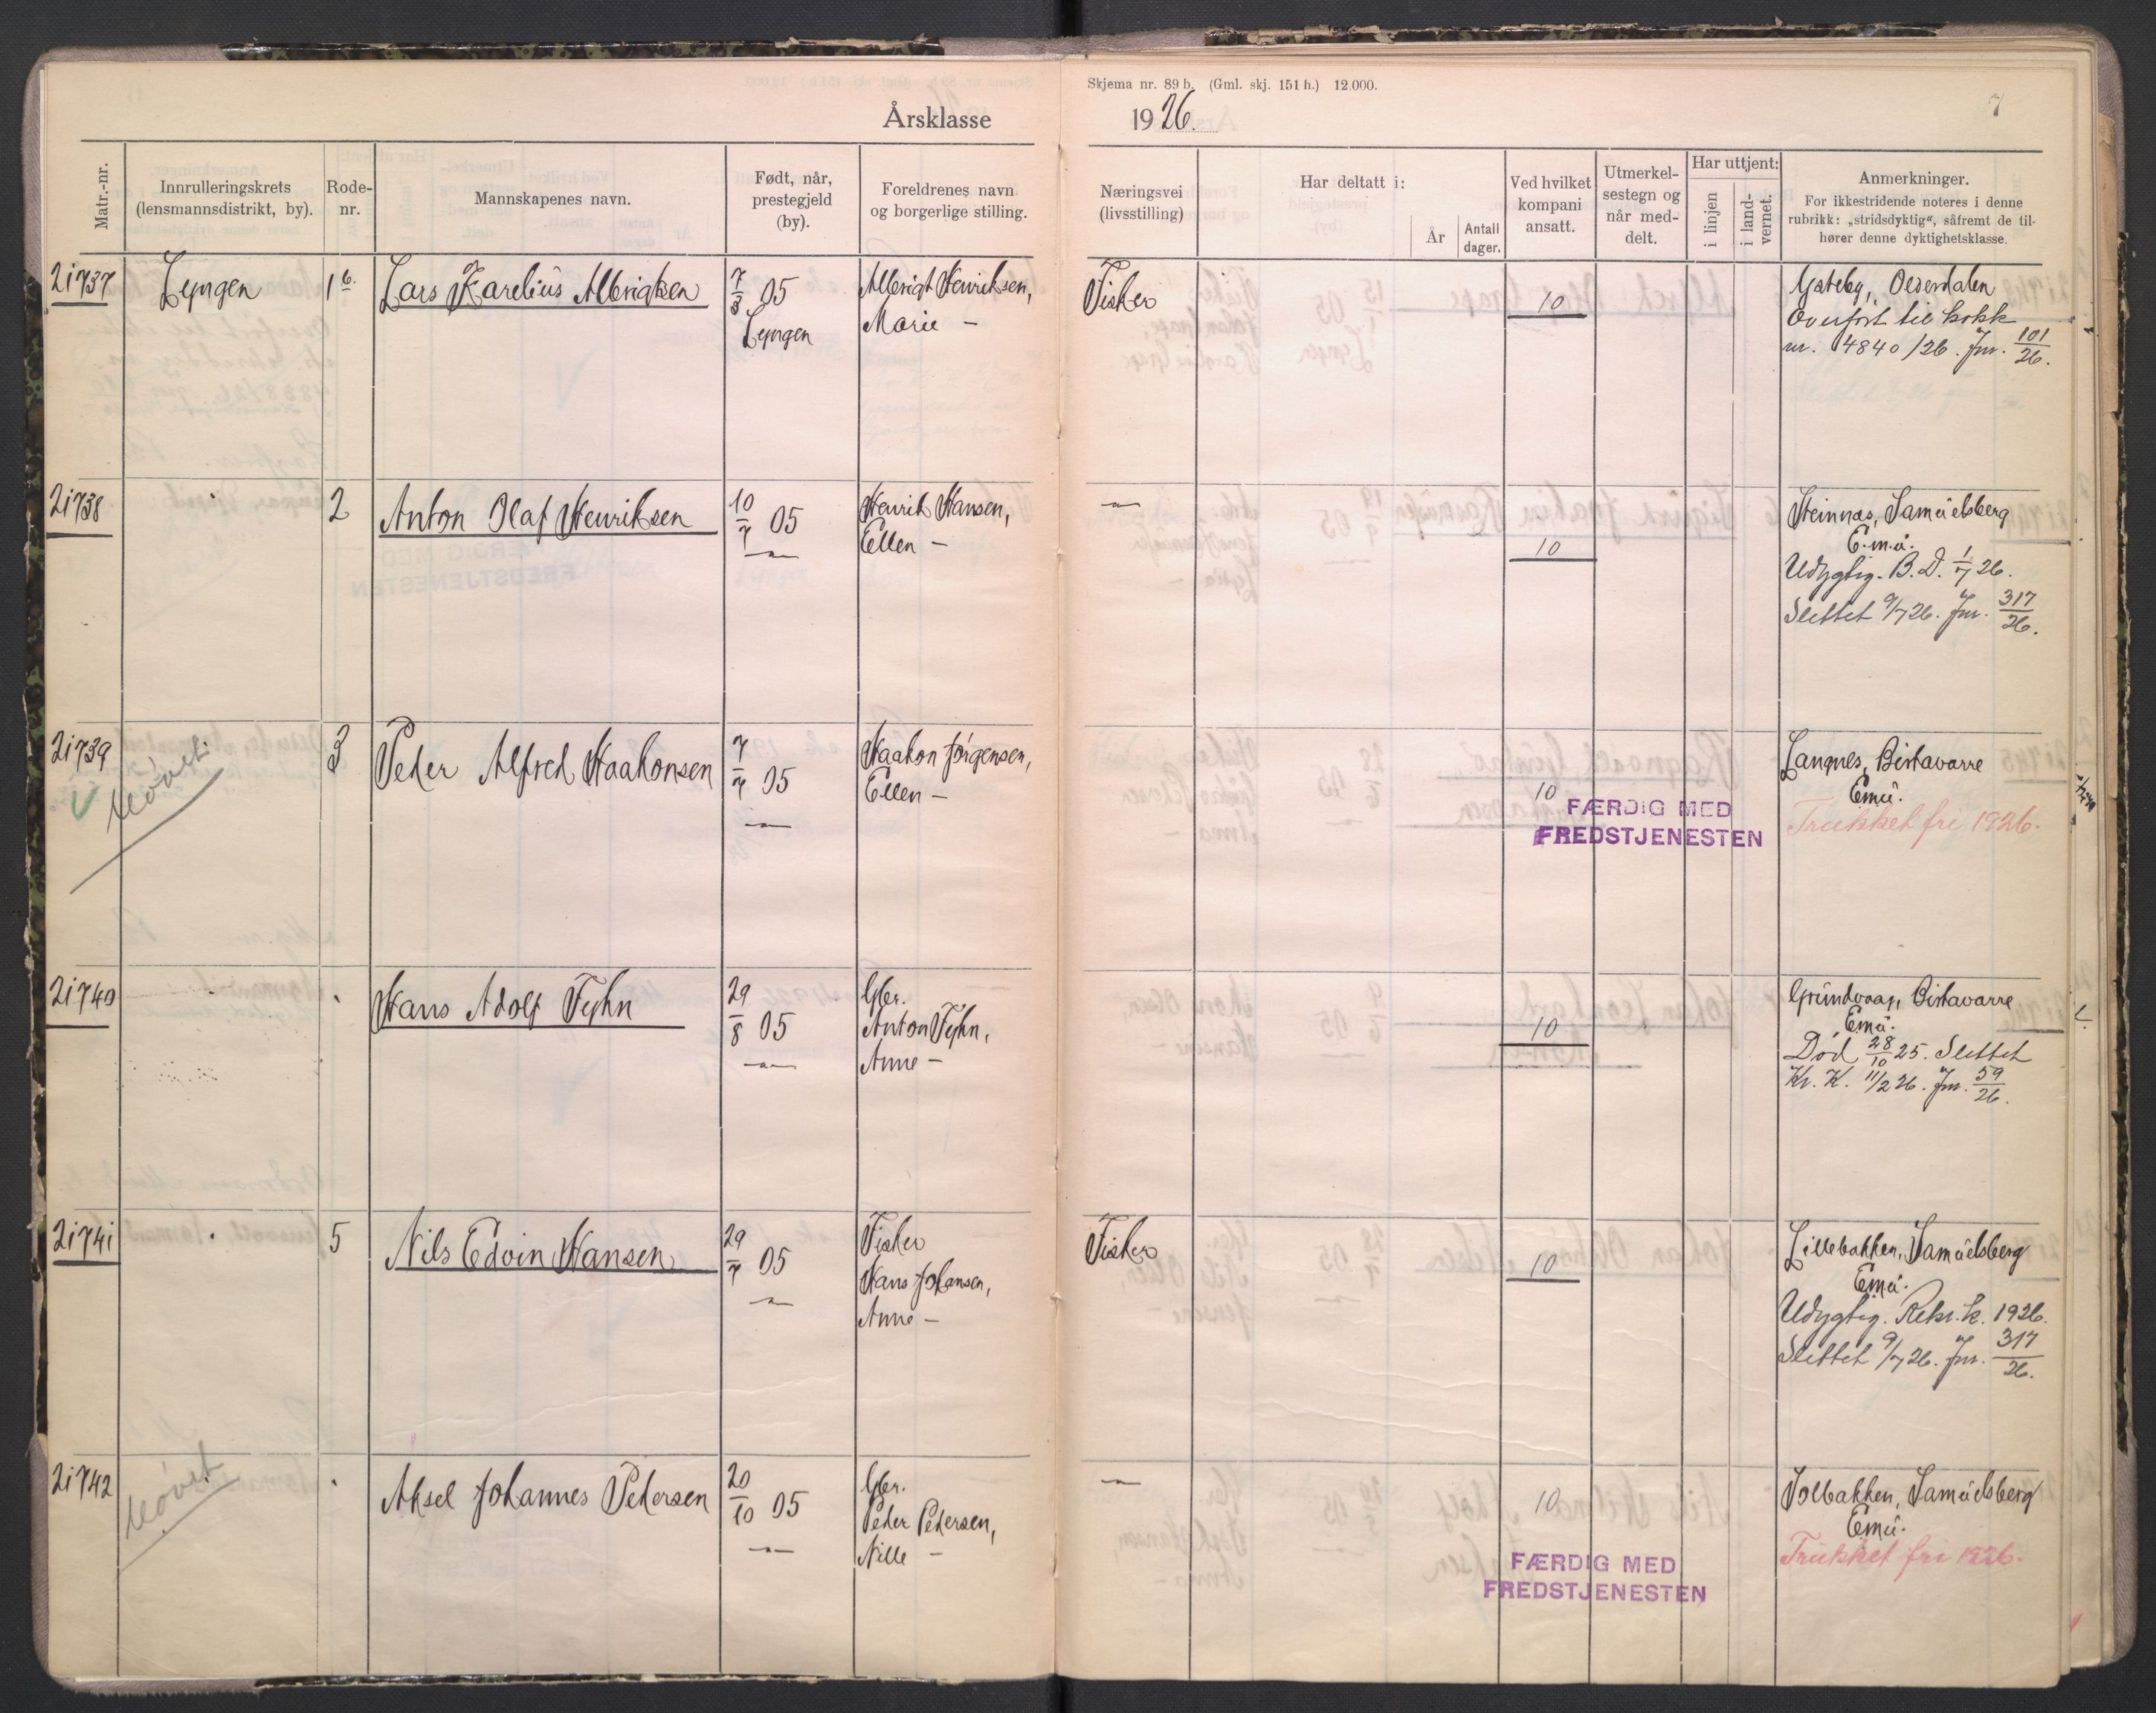 Skjema nr. 89 b. (Gml. skj. 151 h.) 12.000.
Årsklasse 1926.
7
Matr.-nr.
Innrulleringskrets
(lensmannsdistrikt, by).
Rode-
nr.
Mannskapenes navn.
Født, når,
prestegjeld
(by).
Foreldrenes navn
og borgerlige stilling.
Næringsvei
(livsstilling)
Har deltatt i:
År
Antall
dager.
Ved hvilket
kompani
ansatt.
Utmerkel-
sestegn og
når med-
delt.
Har uttjent:
i linjen
i land-
vernet.
Anmerkninger.
For ikkestridende noteres i denne
rubrikk: „stridsdyktig“, såfremt de til-
hører denne dyktighetsklasse.
21737 Lyngen 1 b. Lars Karelius Albrigtsen
7/3 05
Lyngen
Albrigt Henriksen,
Marie —
Fisker
10
Gateby, Oederdalen
Overført til kokk
nr. 4840/26. Jnr. 101/26.
21738 2 Anton Olaf Henriksen
10/7 05
—"—
Henrik Hansen,
Ellen —
—"—
10
Steinnæs, Samuelsberg
E.m.u.
Udygtig. B.D. 1/7 26.
Slettet 9/7 26. Jnr. 317/26.
21739 3 Peder Alfred Haakonsen
7/7 05
—"—
Haakon Jørgensen,
Ellen —
10
FÆRDIG MED
FREDSTJENESTEN
Langnes, Birtavarre
Emu.
Trukket fri 1926.
21740 Hans Adolf Fyhn
29/8 05
—"—
Gbr.
Anton Fyhn,
Anne —
10
Grundvaag, Birtavarre
Emu.
Død 28/10 25. Slettet
Kr. K. 11/2 26. Jnr. 59/26.
21741 5 Nils Edvin Hansen
29/7 05
—"—
Fisker
Hans Johansen,
Anne —
Fisker
10
Lillebakken, Samuelsberg
Emu.
Udygtig. Rekr.k. 1926.
Slettet 9/7 26. Jnr. 317/26.
21742 Aksel Johannes Pedersen
20/10 05
—"—
Gbr.
Peder Pedersen,
Nille —
—"—
10
FÆRDIG MED
FREDSTJENESTEN
Solbakken, Samuelsberg
Emu.
Trukket fri 1926.